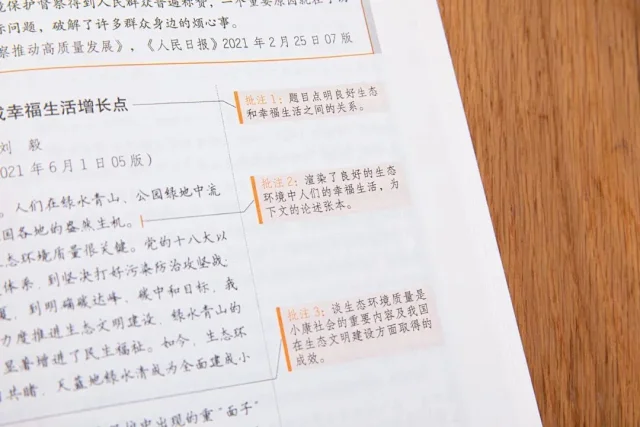 境保护督察得到人民群众普遍称赞,一个重要原因就在于
际问题,破解了许多群众身边的烦心事。
察推动高质量发展》,《人民日报》2021年2月25日07版
成幸福生活增长点
刘 毅
021年6月1日05版)
。人们在绿水青山、公园绿地中流
国各地的盎然生机。
态环境质量很关键。党的十八大以
体系,到坚决打好污染防治攻坚战
,到明确碳达峰、碳中和目标,我
力度推进生态文明建设,绿水青山的
显著增进了民生福祉。如今,生态环
共睹,天蓝地绿水清成为全面建成小
中出现的重“面子”
批注1:题目点明良好生态
和幸福生活之间的关系。
批注2:渲染了良好的生态
环境中人们的幸福生活,为
下文的论述张本。
批注3:谈生态环境质量是
小康社会的重要内容及我国
在生态文明建设方面取得的
成效。